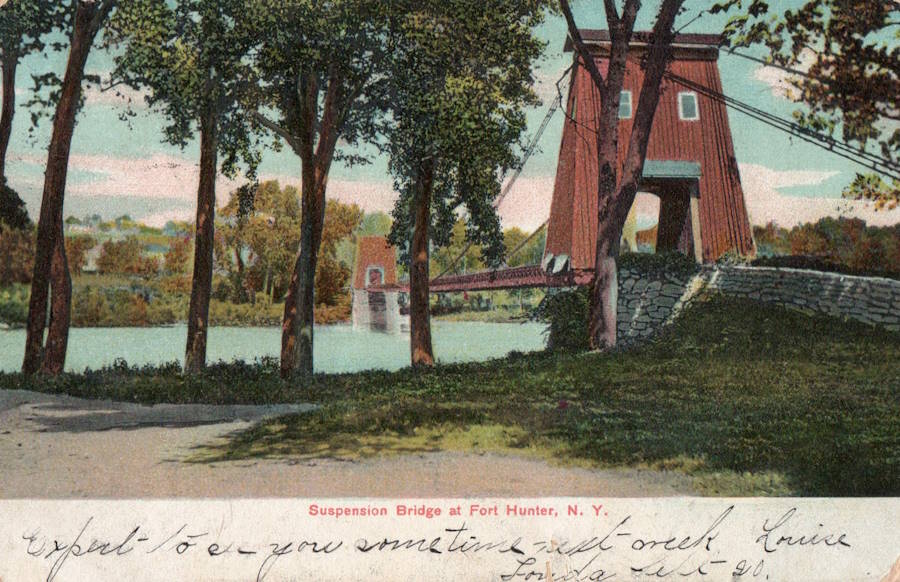 Suspension Bridge at Fort Hunter, N. Y.
Expect to see you sometime next week Louise
Fonda Sept 20.